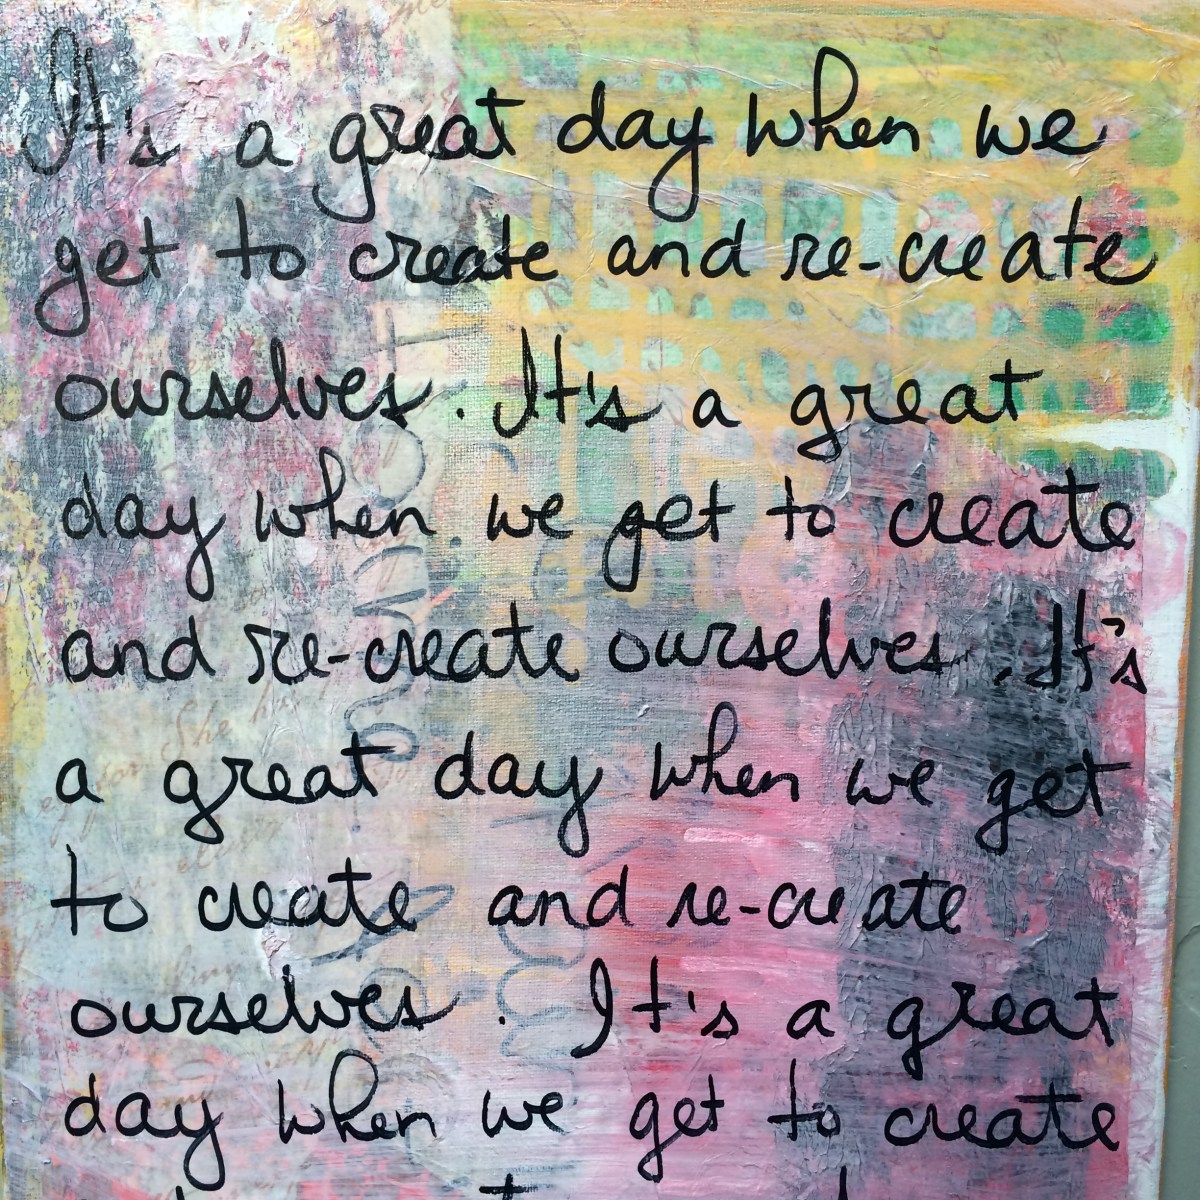 It's a great day when we
get to create and re-create
ourselves. It's a great
day when we get to create
and re-create ourselves. It's
a great day when we get
to create and re-create
ourselves. It's a great
day when we get to create
She